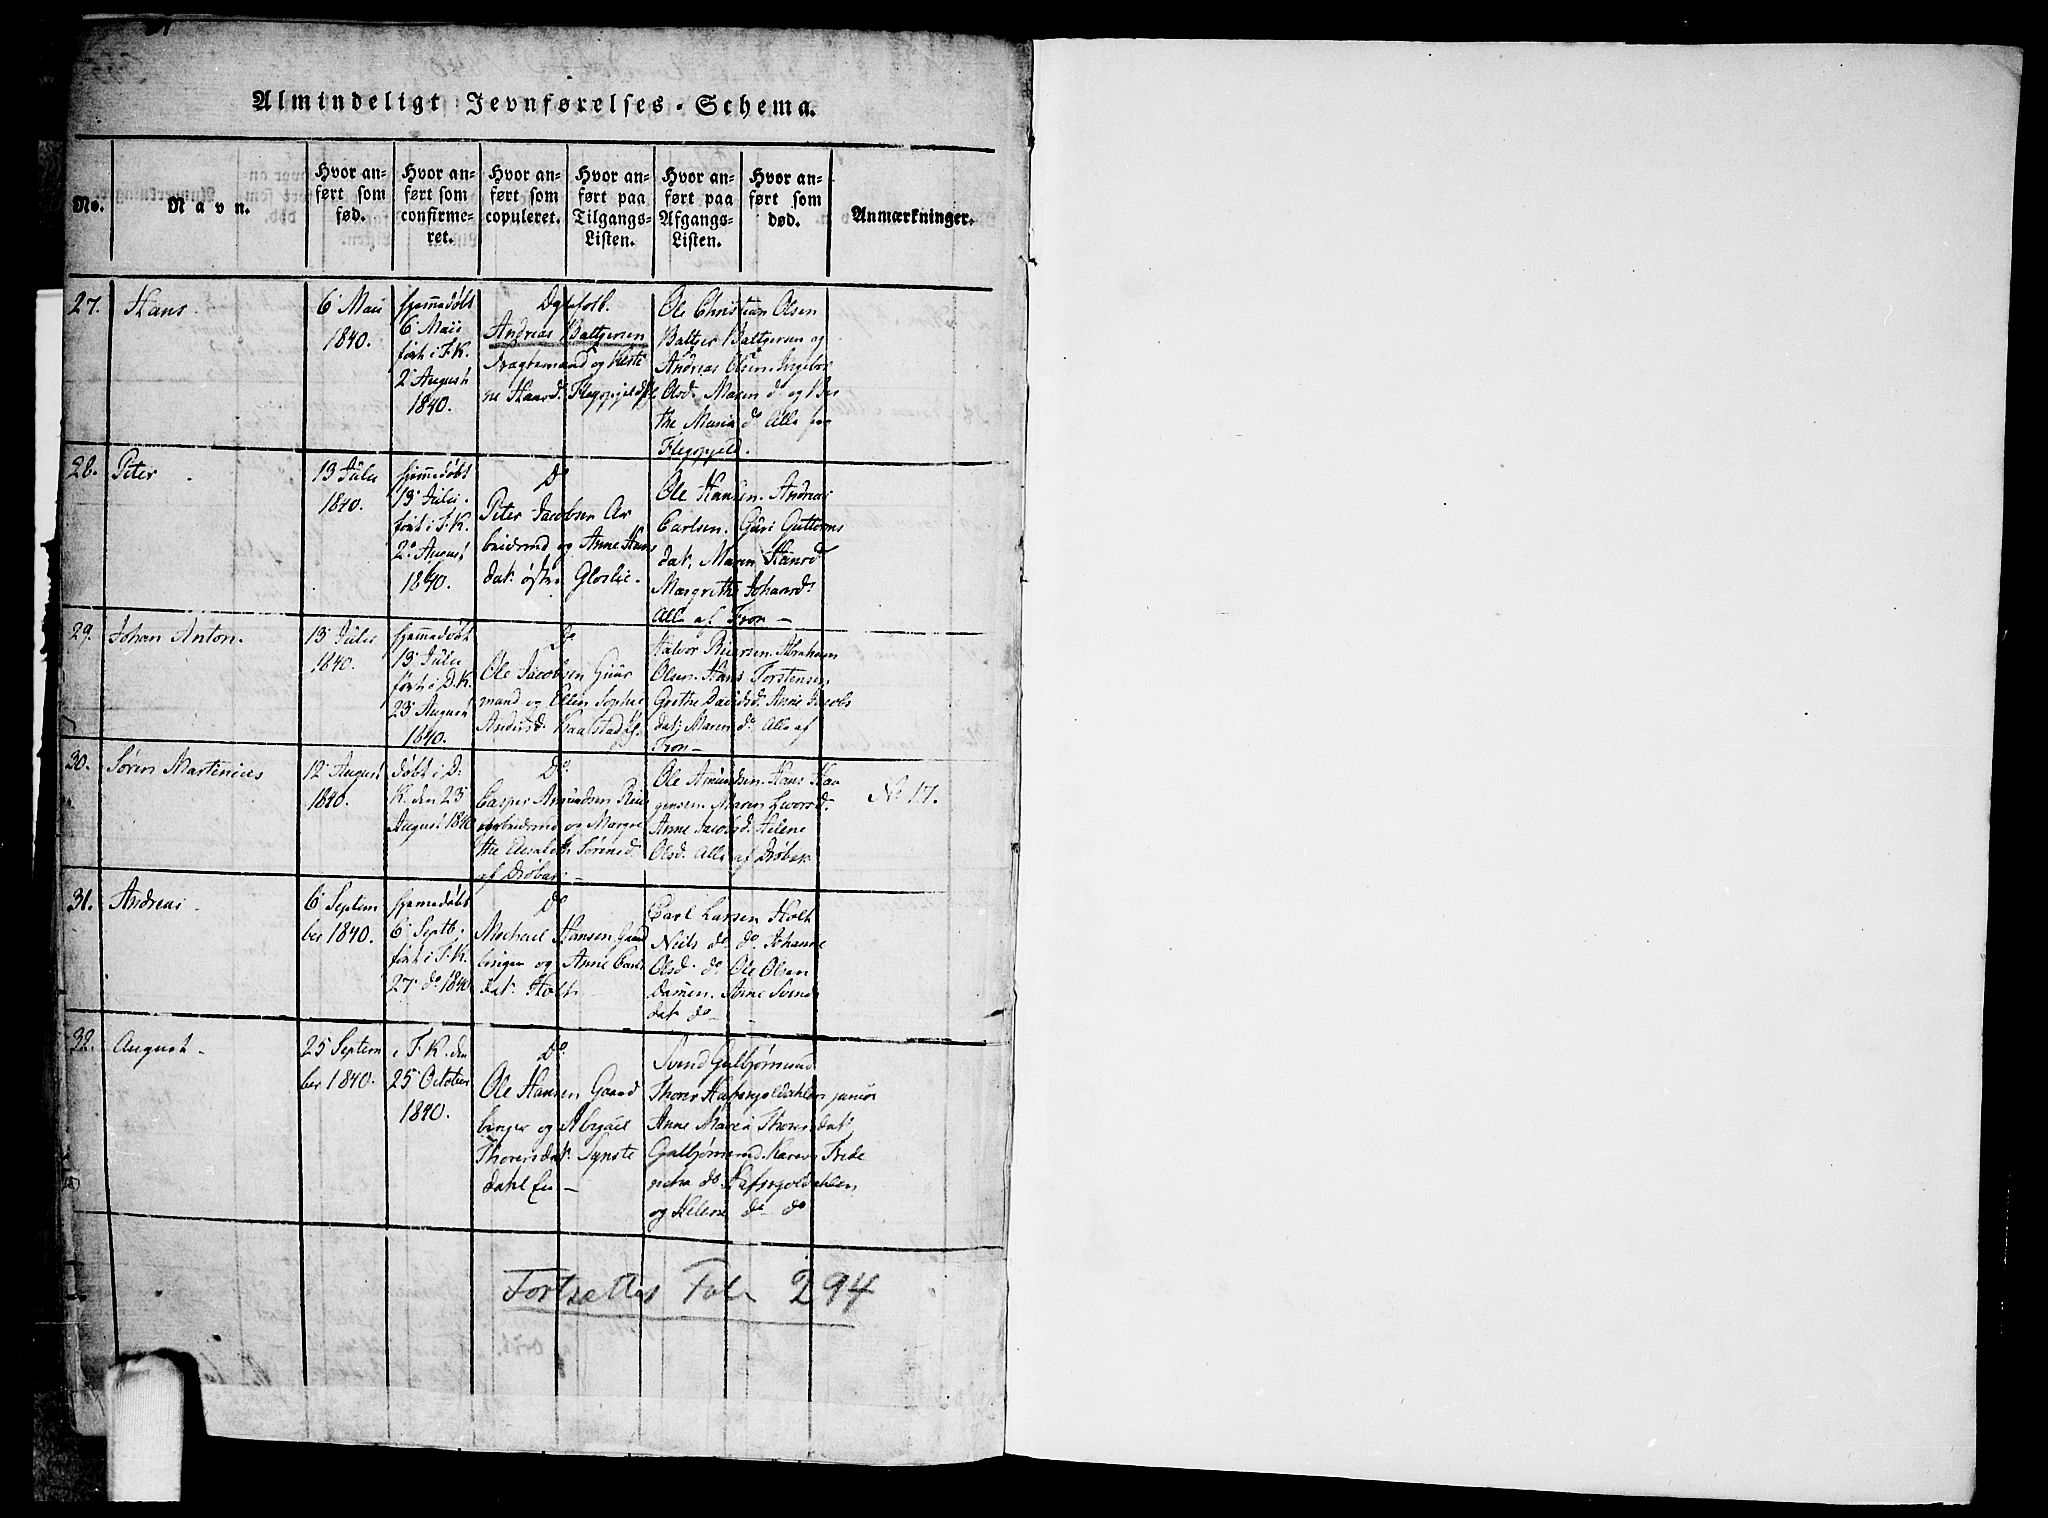 Almindeligt Jevnførelses-Schema.
No.
Navn.
Hvor an-
ført som
fød.
Hvor an-
ført som
confirme-
ret.
Hvor an-
ført som
copuleret.
Hvor an-
ført paa
Tilgangs-
Listen.
Hvor an-
ført paa
Afgangs-
Listen.
Hvor an-
ført som
død.
Anmærkninger.
27.
Hans
6 Maii
1840.
hjemmedøbt
6 Maii
først i F.K.
2 August
1840.
Ægtefolk.
Andreas Baltzersen
Fragtemand og Kirste
ne Hansd.
Ole Christian Olsen
Baltzer Baltzersen og
Andreas Olsen. Ingebor
Olsd. Maren do og Ber
the Maria do Alle fra
28.
Peter
13 Julii
1840.
hjemmedøbt
13 Julii
først i F.K.
2 August
1840.
Do
Peter Jacobsen Ar
beidsmd og Anne Hans
dat. østre Gloslie.
Ole Hansen. Andreas
Carlsen. Guri Guttorms
dat. Maren Hansd.
Margrethe Johannd.
Alle af Fron
29.
Johan Anton.
13 Julii
1840.
hjemmedøbt
13 Julii
først i D.K.
23 August
1840.
Do
Ole Jacobsen Huus
mand og Ellen Sophie
Andersd. Kaalstad
Halvor Reiersen. Abraham
Olsen. Hans Torstensen
Grethe Davidsd. Anne Jacobs
dat. Maren do. Alle af
Fron
30.
Søren Martinius
12 August
1840.
døbt i D.
K. den 23
August 1840
Do.
Casper Amundsen
arbeidsmd og Margre
the Elisabeth Sørensd.
af Drøbak
Ole Amundsen. Hans Haa
gensen. Maren Iversd.
Anne Jacobsd. Helene
Olsd. Alle af Drøbak
No 17.
31.
Andreas
6 Septem
ber 1840.
hjemmedøbt
6 Septb.
først i F.K.
27 do 1840
Do
Michael Hansen Gaard
bruger og Anne Carls
dat. Holt
Carl Larsen Holt
Niels do do Johanne
Olsd. do. Ole Olsen
Damen. Anne Svends
dat do
32.
August
25 Septem
ber 1840.
i F.K. den
25 October
1840.
Do.
Ole Hansen Gaard
bruger og Abigael
Thorersdat. Synste
dahl Eie
Svend Gulbjørnrud
Thorer Hafsnjoldahlen junior
Anne Maria Thorersdat.
Gulbjørnsrud. Karen Frede
rikke do Hafsnjoldahlen
og Helene do do
Fortsættes Fol. 294